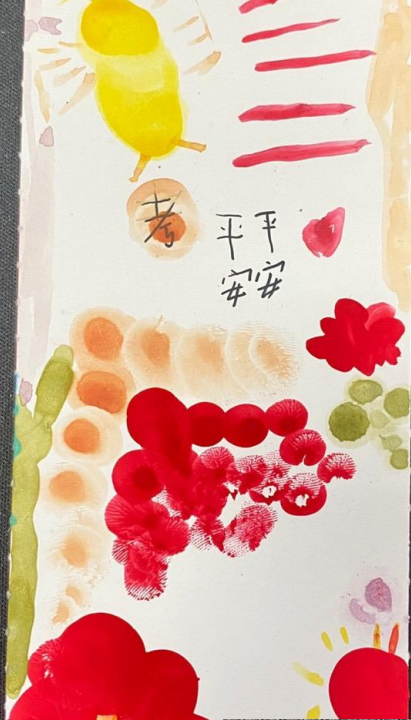 考
平平
安安